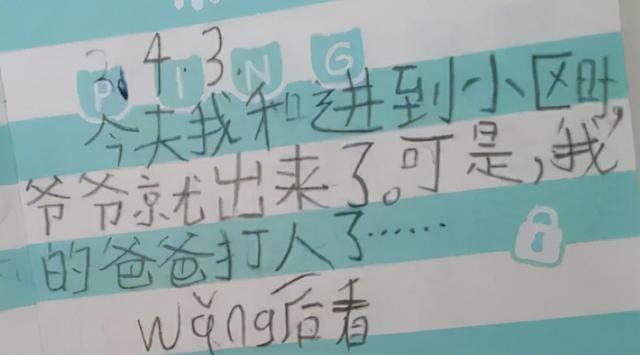 3. 4. 3.
PING
今天我和进到小区时,
爷爷就出来了。可是,我
的爸爸打人了……
wǎng后看